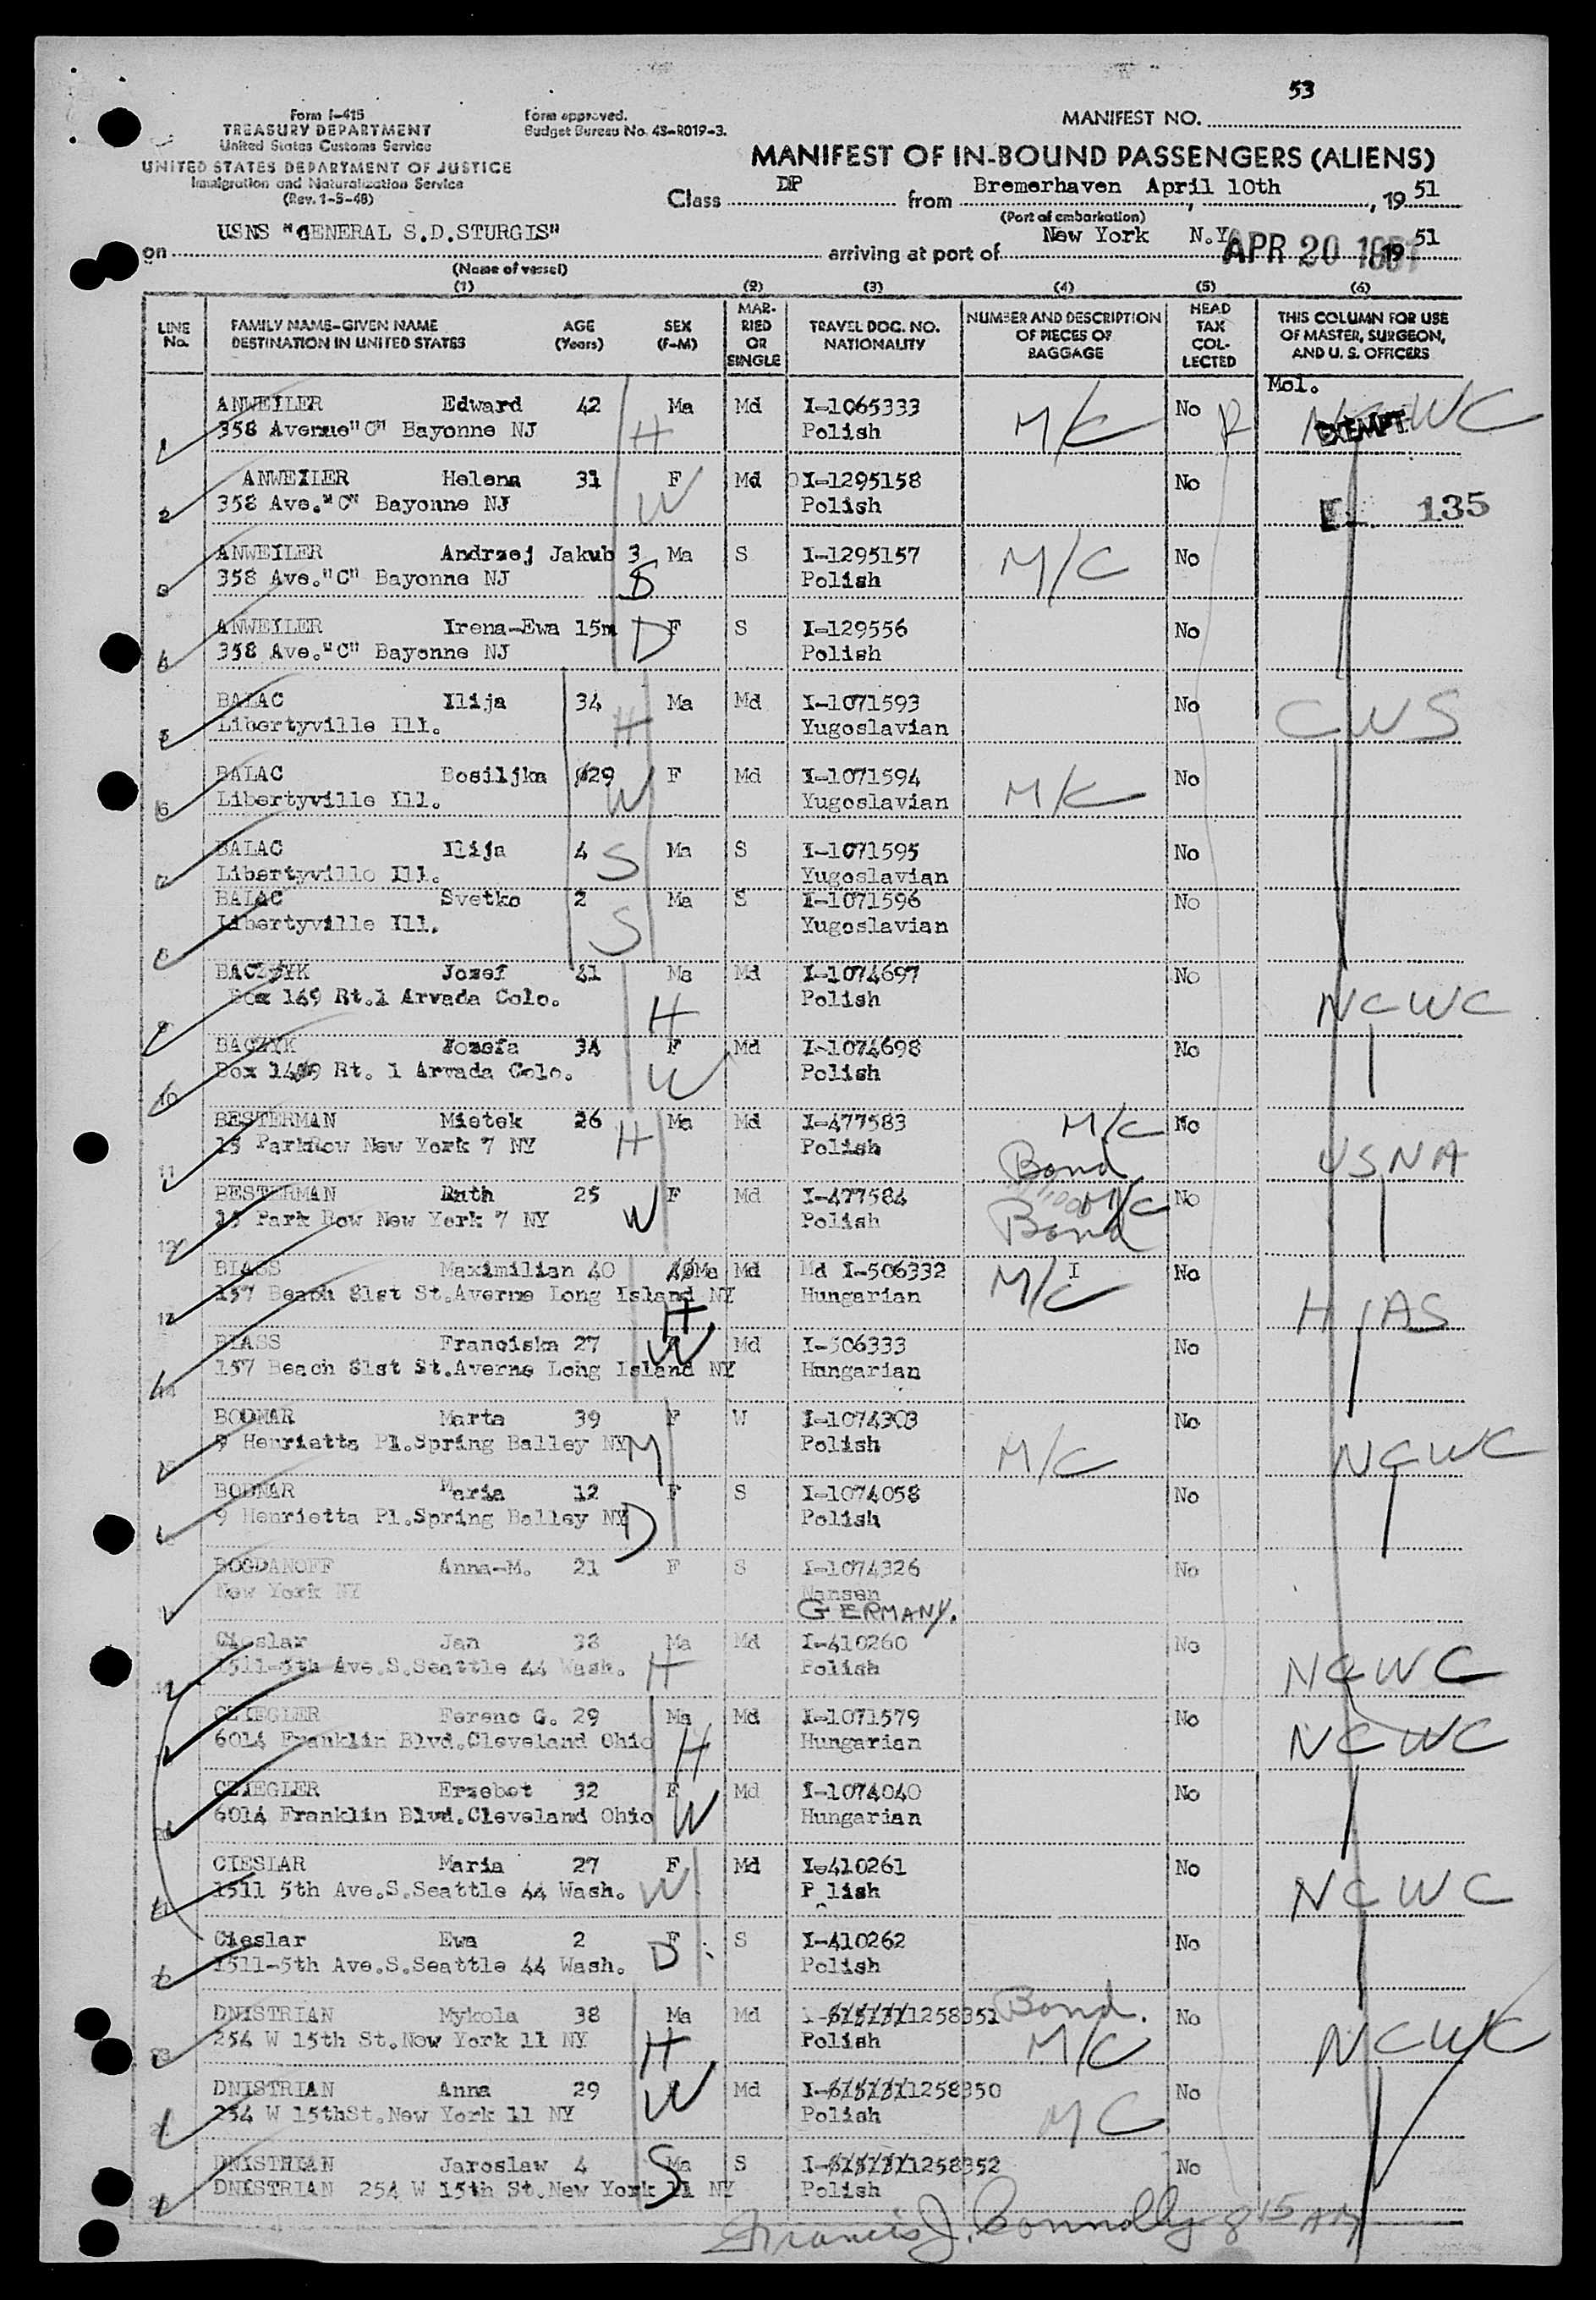 53
Form I-415
TREASURY DEPARTMENT
United States Customs Service
UNITED STATES DEPARTMENT OF JUSTICE
Immigration and Naturalization Service
(Rev. 1-5-48)
Form approved.
Budget Bureau No. 43-R019-3.
MANIFEST NO.
MANIFEST OF IN-BOUND PASSENGERS (ALIENS)
Class DP from Bremerhaven April 10th, 19 51
(Port of embarkation)
on USNS "GENERAL S.D.STURGIS" arriving at port of New York N.Y. APR 20 1951 19 51
(Name of vessel)
(1) (2) (3) (4) (5) (6)
LINE No. FAMILY NAME-GIVEN NAME DESTINATION IN UNITED STATES AGE (Years) SEX (F-M) MARRIED OR SINGLE TRAVEL DOC. NO. NATIONALITY NUMBER AND DESCRIPTION OF PIECES OF BAGGAGE HEAD TAX COLLECTED THIS COLUMN FOR USE OF MASTER, SURGEON, AND U. S. OFFICERS
Mol.
ANWEILER Edward 42 Ma Md I-1065333 M/C No R NCWC EXEMPT
1 358 Avenue"C" Bayonne NJ H Polish
ANWEILER Helena 31 F Md I-1295158 No
2 358 Ave."C" Bayonne NJ W Polish 135
ANWEILER Andrzej Jakub 3 Ma S I-1295157 M/C No
3 358 Ave."C" Bayonne NJ S Polish
ANWEILER Irena-Ewa 15m F S I-129556 No
4 358 Ave."C" Bayonne NJ D Polish
BALAC Ilija 34 Ma Md I-1071593 No CWS
5 Libertyville Ill. H Yugoslavian
BALAC Bosiljka 29 F Md I-1071594 No
6 Libertyville Ill. W Yugoslavian M/C
BALAC Ilija 4 Ma S I-1071595 No
7 Libertyville Ill. S Yugoslavian
BALAC Svetko 2 Ma S I-1071596 No
8 Libertyville Ill. S Yugoslavian
BACZYK Jozef 41 Ma Md I-1074697 No
9 Box 149 Rt.1 Arvada Colo. H Polish NCWC
BACZYK Jozefa 34 F Md I-1074698 No
10 Box 149 Rt. 1 Arvada Colo. W Polish
BESTERMAN Mietek 26 Ma Md I-477583 M/C No
11 15 ParkRow New York 7 NY H Polish Bond USNA
BESTERMAN Ruth 25 F Md I-477584 M/C No
12 15 Park Row New York 7 NY W Polish Bond
BIASS Maximilian 40 Ma Md Md I-506332 I No
13 157 Beach 81st St.Averne Long Island NY H Hungarian M/C HIAS
BIASS Franciska 27 W Md I-506333 No
14 157 Beach 81st St.Averne Long Island NY Hungarian
BODNAR Marta 39 F W I-1074303 No
15 9 Henrietta Pl.Spring Balley NY M Polish M/C NCWC
BODNAR Maria 12 F S I-1074058 No
16 9 Henrietta Pl.Spring Balley NY D Polish
BOGDANOFF Anna-M. 21 F S I-1074326 No
New York NY Nansen
GERMANY.
Cieslar Jan 38 Ma Md I-410260 No
1511-5th Ave.S.Seattle 44 Wash. H Polish NCWC
CZIEGLER Ferenc G. 29 Ma Md I-1071579 No
6014 Franklin Blvd.Cleveland Ohio H Hungarian NCWC
CZIEGLER Erzebet 32 F Md I-1074040 No
20 6014 Franklin Blvd.Cleveland Ohio W Hungarian
CIESLAR Maria 27 F Md I-410261 No
21 1511 5th Ave.S.Seattle 44 Wash. W P lish NCWC
Cieslar Ewa 2 F S I-410262 No
22 1511-5th Ave.S.Seattle 44 Wash. D Polish
DNISTRIAN Mykola 38 Ma Md 1258351 Bond. No
23 254 W 15th St.New York 11 NY H Polish M/C NCWC
DNISTRIAN Anna 29 Md I-1258350 No
24 254 W 15thSt.New York 11 NY W Polish MC
DNISTRIAN Jaroslaw 4 Ma S I-1258352 No
25 DNISTRIAN 254 W 15th St.New York 11 NY S Polish
Francis J. Connolly 8 15 AM